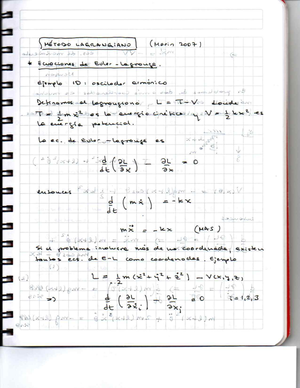 MÉTODO LAGRANGIANO (Morin 2007)
* Ecuaciones de Euler-Lagrange.
Ejemplo 1D: oscilador armónico
Definimos el lagrangiano L = T - V donde
T = 1/2 mẋ² es la energía cinética y V = 1/2 kx² es
la energía potencial.
La ec. de Euler-Lagrange es
d/dt (∂L/∂ẋ) - ∂L/∂x = 0
entonces
d/dt (mẋ) = -kx
mẍ = -kx (MAS)
Si el problema involucra más de una coordenada, existen
tantas ecs. de E-L como coordenadas. Ejemplo
L = 1/2 m(ẋ² + ẏ² + ż²) - V(x,y,z)
⇒ d/dt (∂L/∂ẋᵢ) - ∂L/∂xᵢ = 0 i=1,2,3